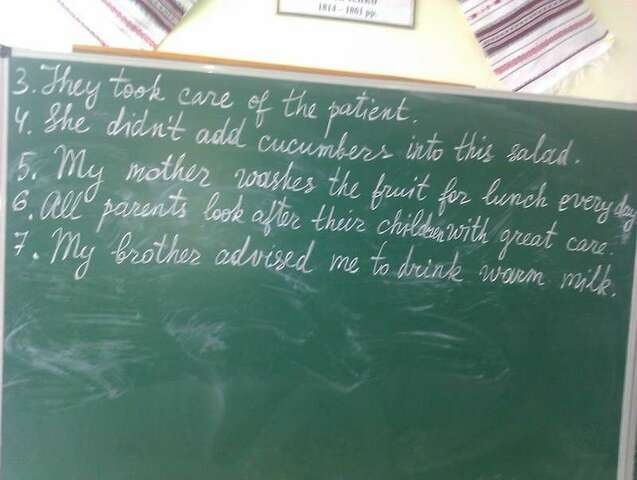 1814 – 1861 рр.
3. They took care of the patient.
4. She didn't add cucumbers into this salad.
5. My mother washes the fruit for lunch every day
6. All parents look after their children with great care.
7. My brother advised me to drink warm milk.